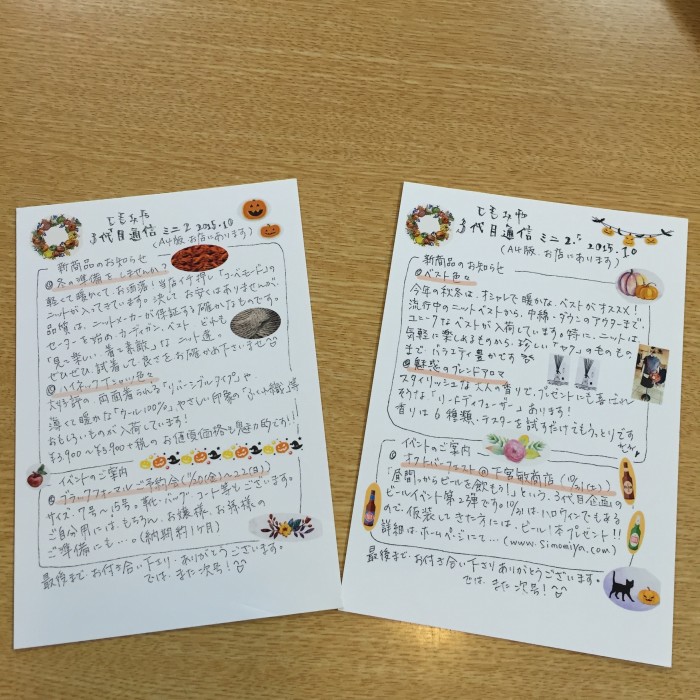 しもみや
3代目通信 ミニ2 2015.10
(A4版 お店にあります)
新商品のお知らせ
冬の準備をしませんか?
軽くて暖かくてお洒落!当店イチ押し「コーベモード」の
ニットが入ってきています。決して お安くはありませんが、
品質は、ニットメーカーが保証する確かなものです。
セーターを始め カーディガン、ベスト どれも
「見て楽しい 着て素敵」な ニット達。
ぜひぜひ、試着して良さをお確かめ下さいませ
ハイネックTシャツ色々
大好評の 両面着られる「リバーシブルタイプ」や
薄くて暖かな「ウール100%」、やさしい印象の「ふくれ織」等
おもしろいものが入荷しています!
¥3,900〜¥5,900+税の お値打価格も魅力的です!!
イベントのご案内
ブラックフォーマルご予約会(20(金)〜22(日))
サイズ、7号〜15号。靴・バッグ コート等もございます。
ご自分用には、もちろん、お嫁様・お婿様の
ご準備にも…。(納期約1ヶ月)
最後まで、お付き合い下さり、ありがとうございます。
では、また次号!
しもみや
3代目通信 ミニ2.5 2015.10
(A4版、お店にあります)
新商品のお知らせ
ベスト色々
今年の秋冬は、オシャレで暖かな、ベストがオススメ!
流行中のニットベストから、中綿・ダウンのアウターまで、
ユニークなベストが入荷しています。特に、ニットは
気軽に楽しめるものから、珍しい「ヤク」のものもの
まで バラエティ豊かです
魅惑のブレンドアロマ
スタイリッシュな大人の香りで、プレゼントにも喜ばれ
そうな「リードディフューザー」あります!
香りは6種類、テスターを試すだけでもうっとりです
イベントのご案内
オクトバーフェスト@下宮敏商店(10/31(土))
「昼間っからビールを飲もう!」という、3代目企画の
ビールイベント第2弾です。10/31はハロウィンでもある
ので、仮装してきた方には、ビール1本プレゼント!!
詳細はホームページにて…(www.simomiya.com)
最後まで、お付き合い下さり ありがとうございます。
では、また次号!